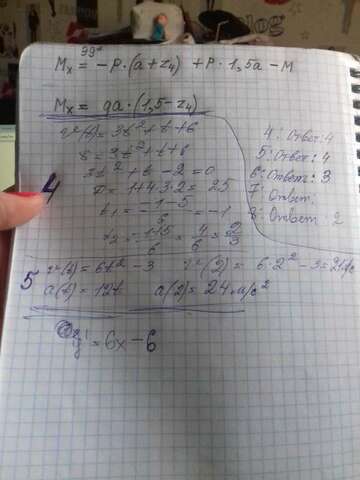 99°
Mx = -P·(a+z4) + P·1,5a - M
Mx = qa·(1,5-z4)
v(t) = 3t²+t+6
8 = 3t²+t+6
3t²+t-2=0
D = 1+4·3·2 = 25
t1 = -1-5/6 = -1
t2 = -1+5/6 = 4/6 = 2/3
4
4: Ответ: 4
5: Ответ: 4
6: Ответ: 3
7: Ответ:
8: Ответ 2
5 v(t) = 6t² - 3 v(2) = 6·2² - 3 = 21 м/с
a(t) = 12t a(2) = 24 м/с²
y' = 6x - 6